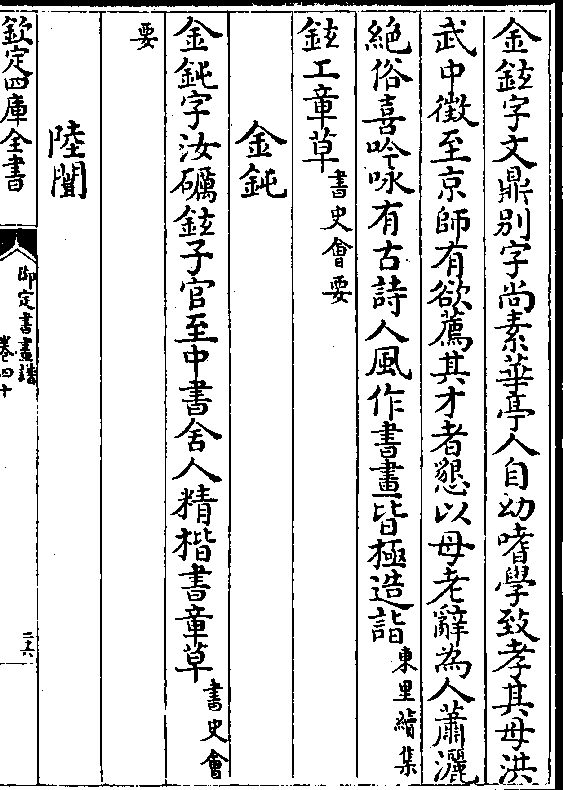 金鉉字文鼎别字尚素華亭人自幼嗜學致孝其母洪
武中徴至京師有欲薦其才者懇以母老辭為人蕭灑
絶俗喜吟咏有古詩人風作書畫皆極造詣東里續集
鉉工章草書史㑹要
金鈍
金鈍字汝礪鉉子官至中書舍人精楷書章草書史㑹
要
陸閶
欽定四庫全書
御定書畫譜
卷四十
二六